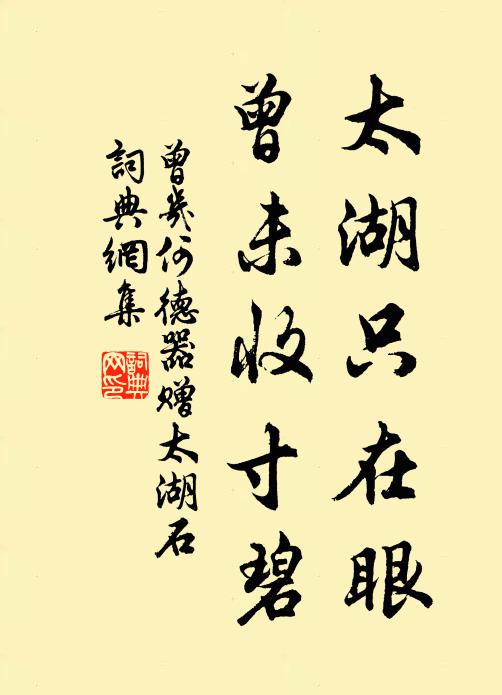 太湖只在眼
曾未收寸碧
曾幾何德器赠太湖石
詞典網集
詞典网印